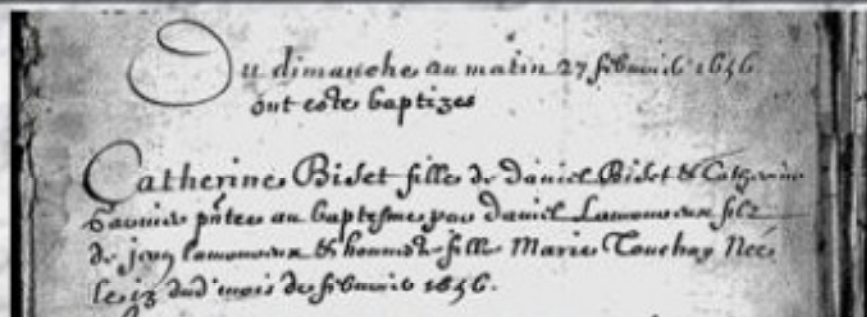 Du dimanche au matin 27 febvrier 1656
ont estes baptizes
Catherine Bidet fille de daniel Bidet & Catherine
pñtee au baptesme par daniel Lamoureux filz
de jean lamoureux & honneste fille Marie Touchay Neé
le dud' mois de febvrier 1656.